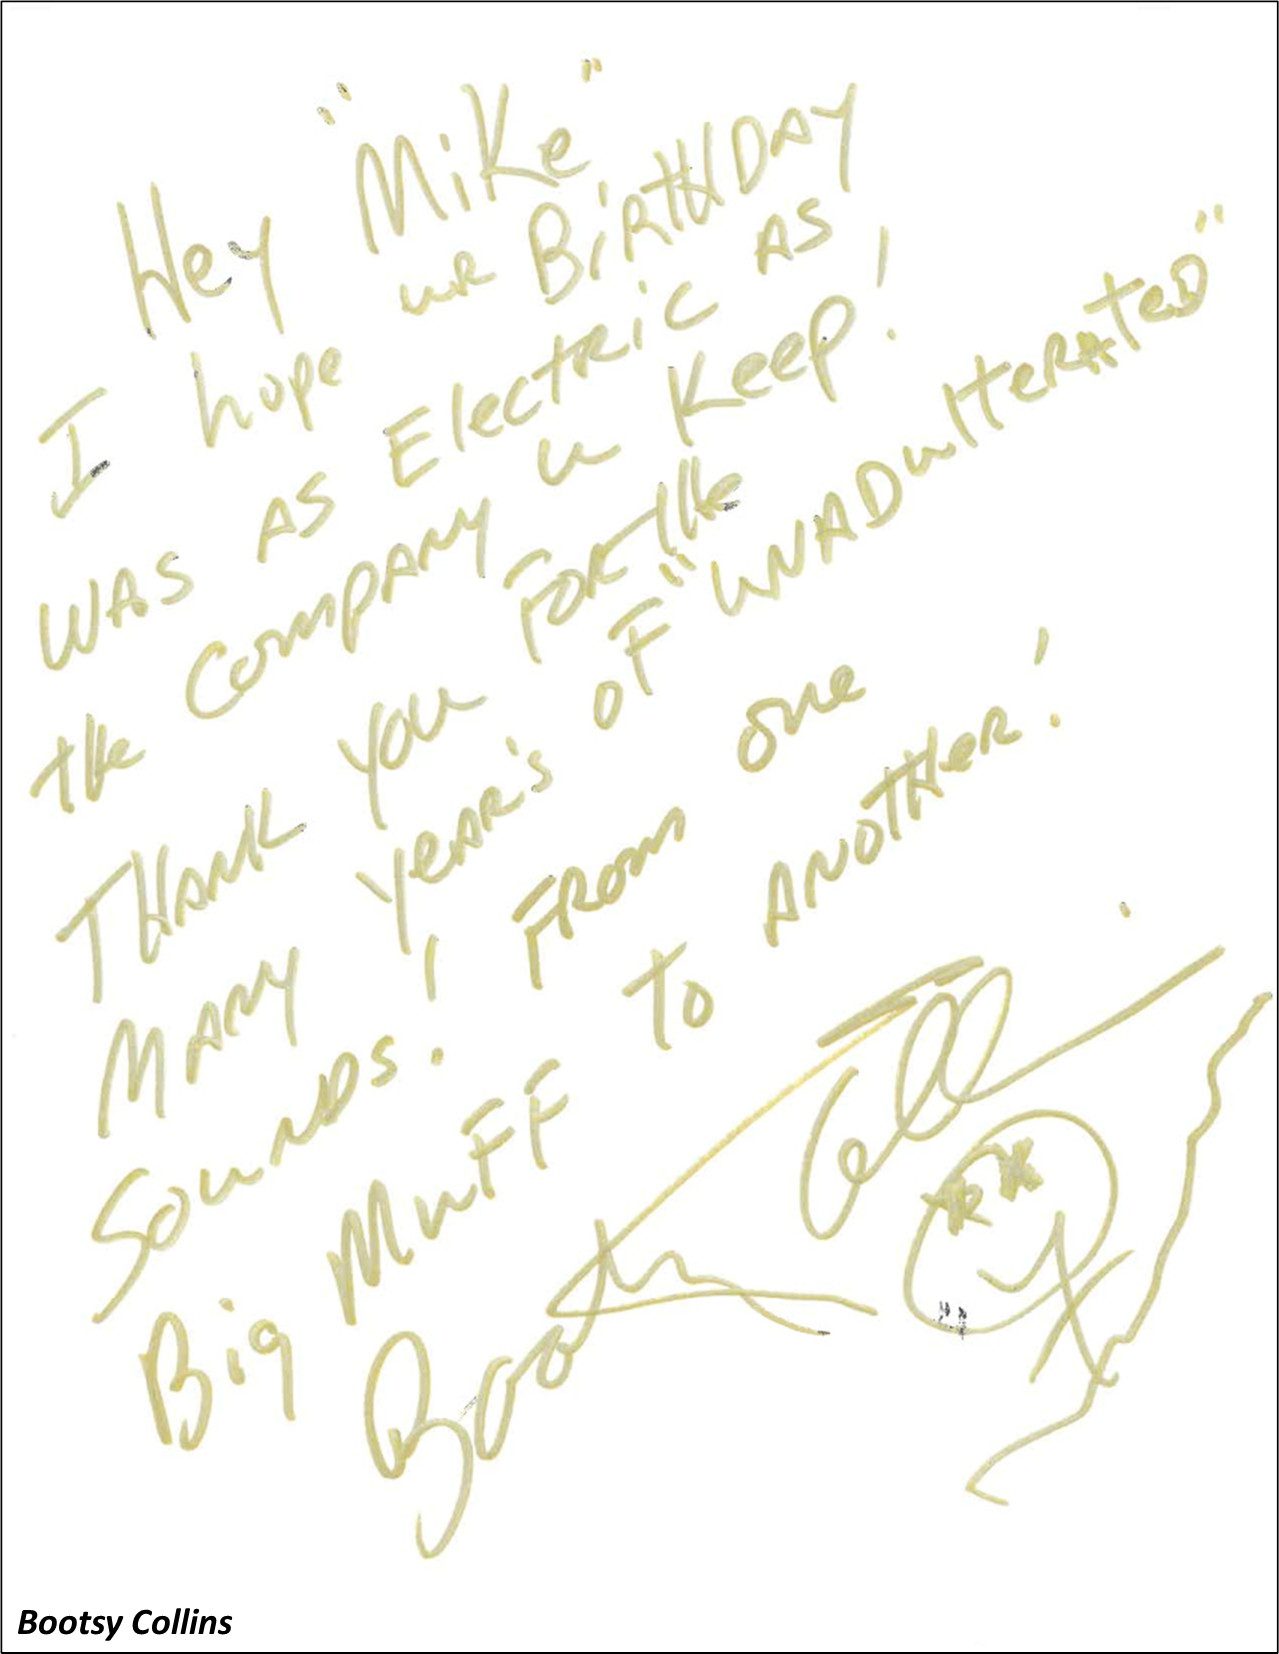 Hey "Mike"
I hope ur BiRTHDAY
WAS AS Electric AS
the Company u Keep!
THANK YOU FOR the
MANY YEAR'S OF "UNADulteRAteD"
Sounds! FROM one
Big MuFF to ANOTHER!
Bootsy Collins